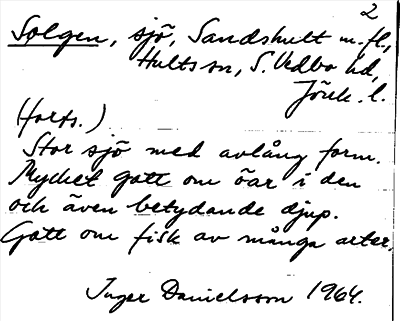 2
Solgen, sjö, Sandshult m.fl.,
Hults sn, S. Vedbo hd,
Jönk. l.
(forts.)
Stor sjö med avlång form.
Mycket gott om öar i den
och även betydande djup.
Gott om fisk av många arter.
Inger Danielsson 1964.